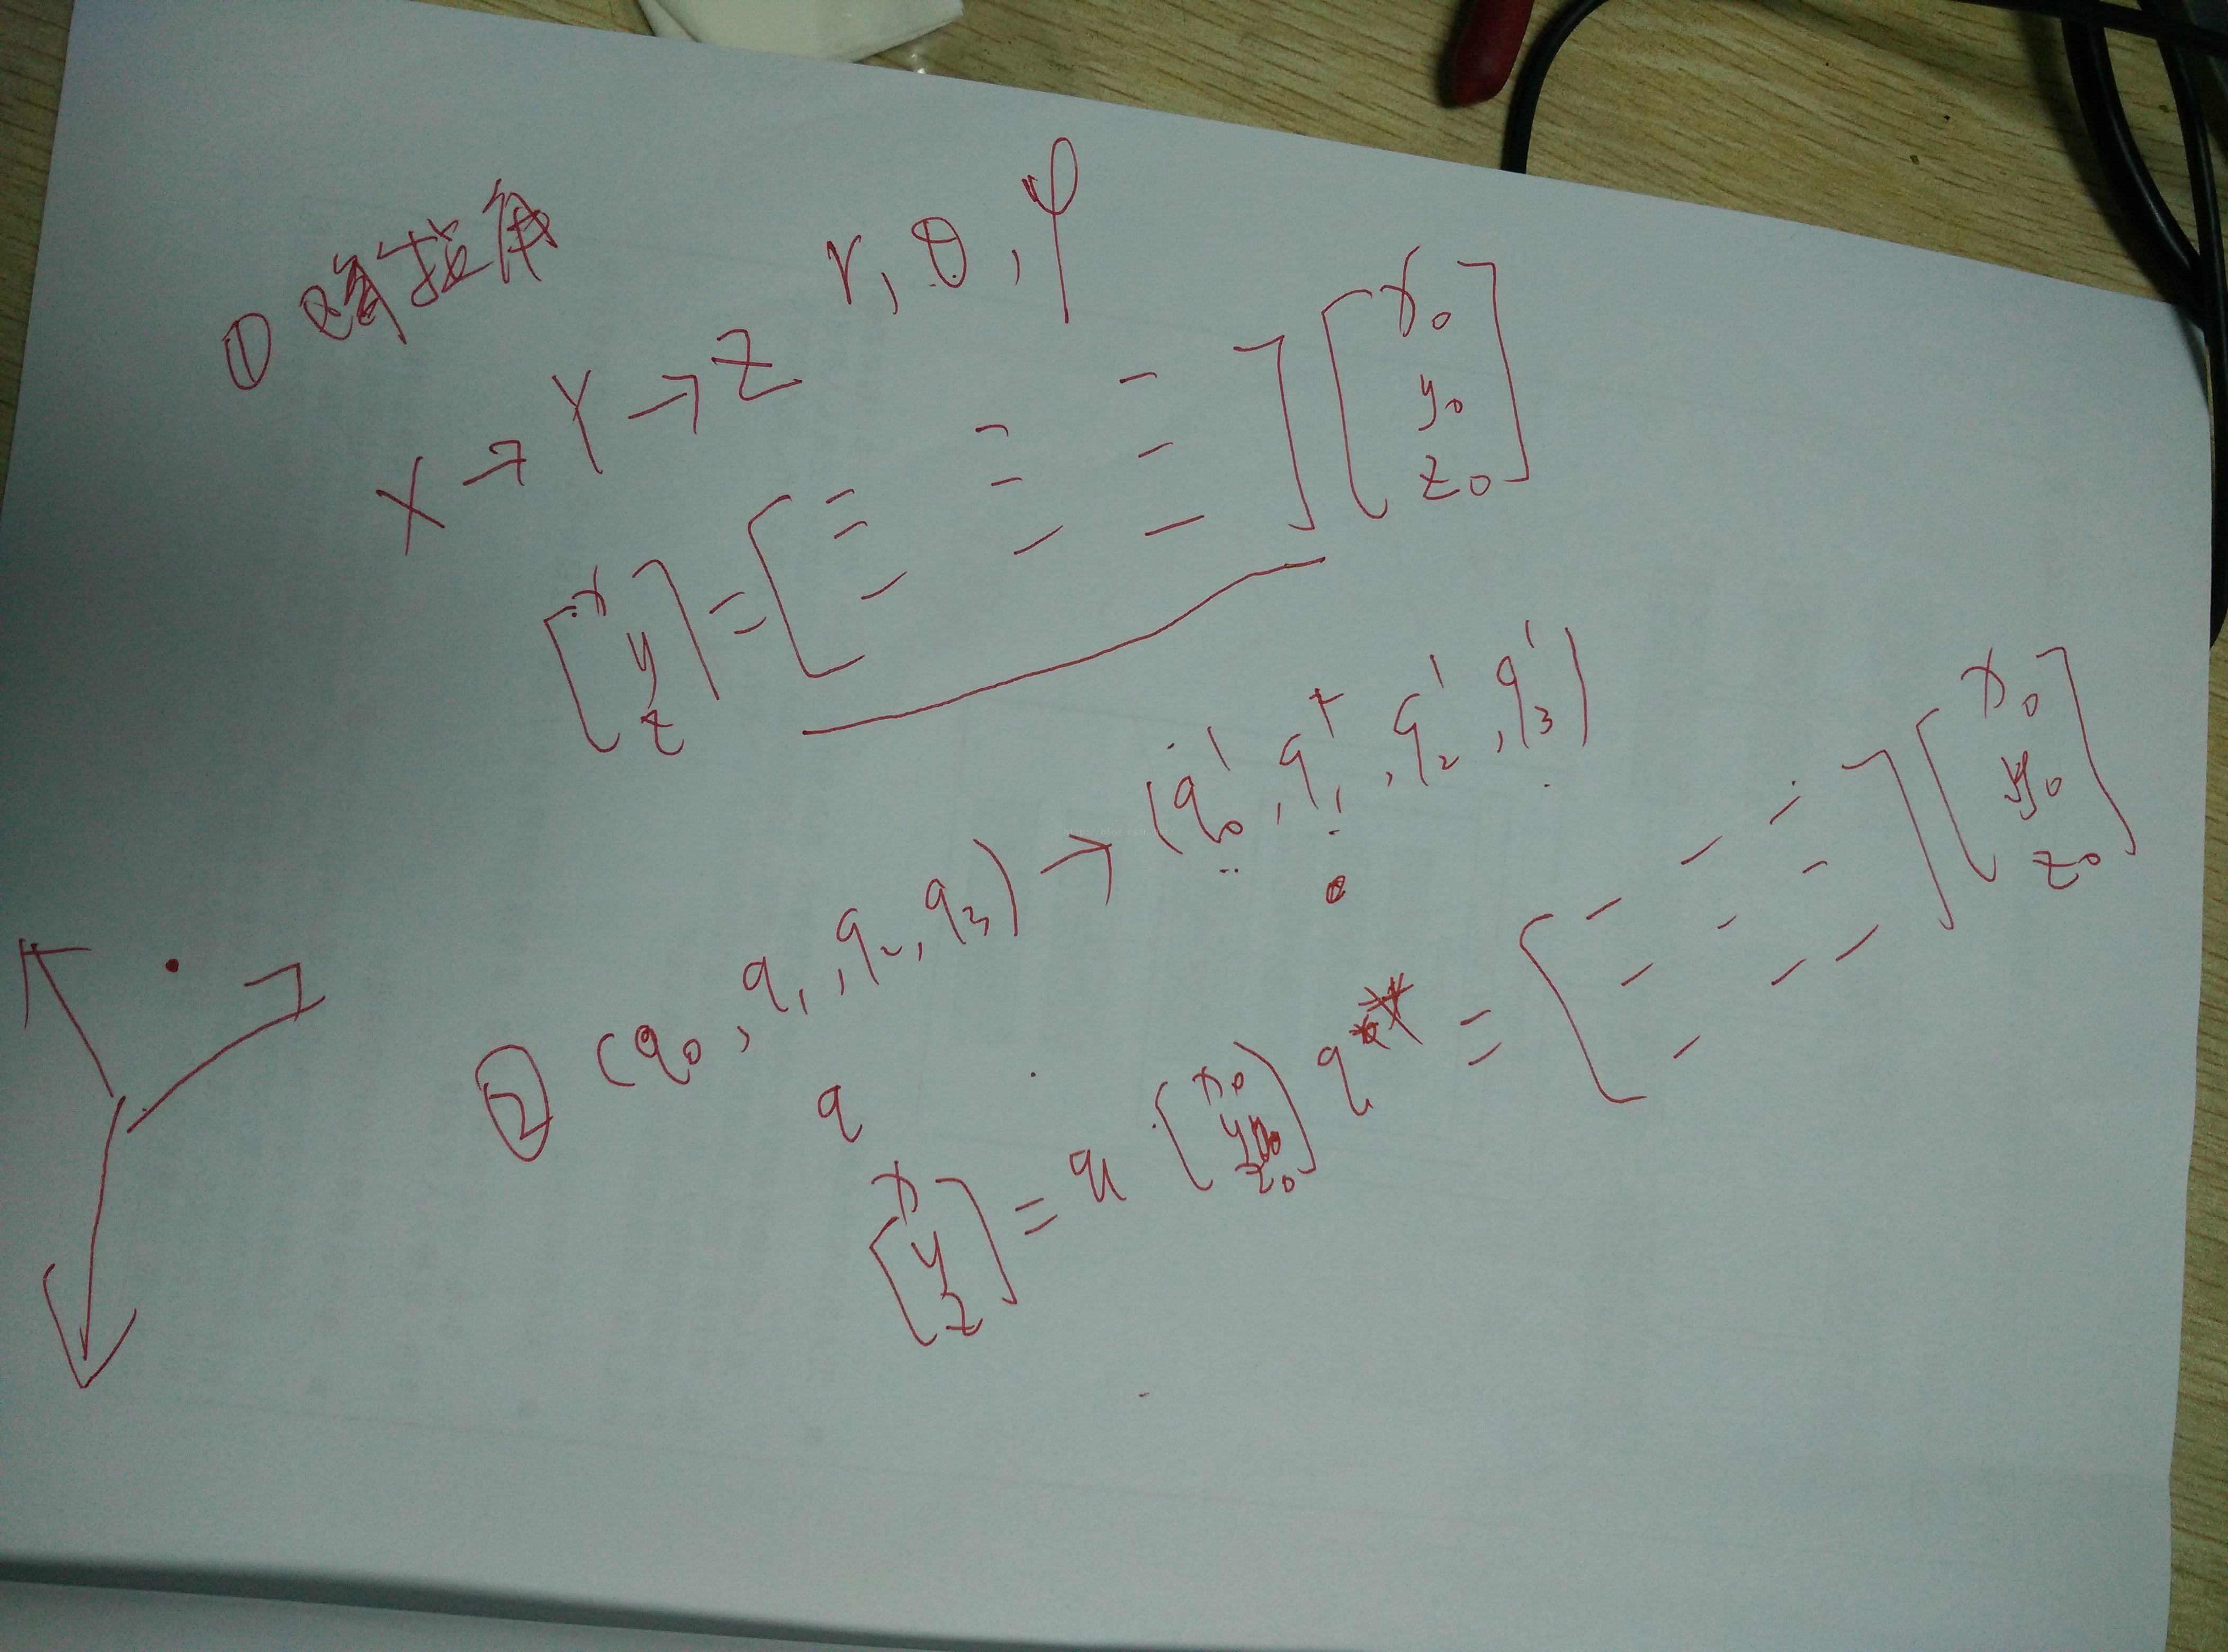 ① 哦拉角
r, θ, φ
X → Y → Z
[x y z] = [ — — — — — — — — — ] [x₀ y₀ z₀]
② (q₀, q₁, q₂, q₃) → (q₀', q₁', q₂', q₃')
q
[x y z] = q [x₀ y₀ z₀] q* = [ — — — — — — — — — ] [x₀ y₀ z₀]